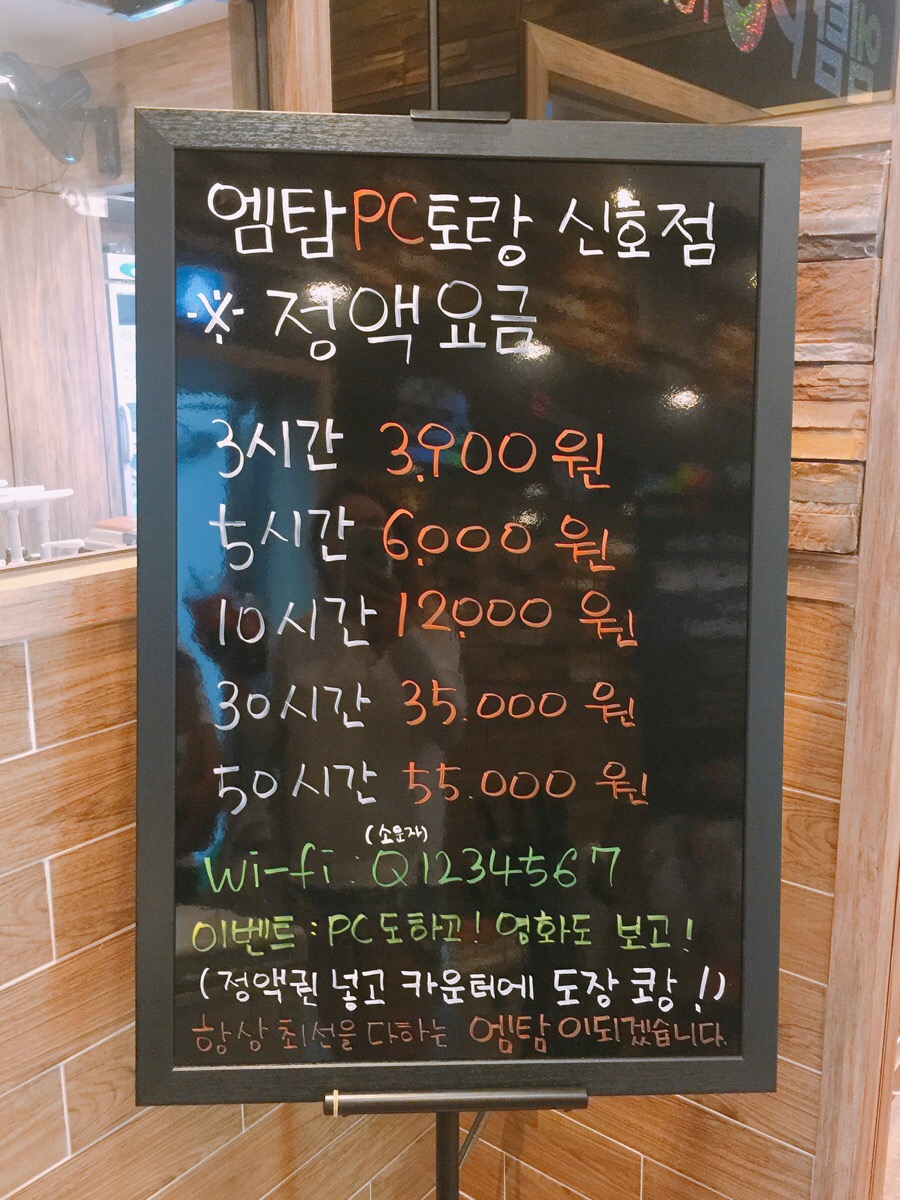 엠탑PC토랑 신호점
※ 정액요금
3시간 3,900원
5시간 6,000원
10시간 12,000원
30시간 35.000원
50시간 55.000원
(소문자)
Wi-fi : Q1234567
이벤트 : PC도하고! 영화도 보고!
(정액권 넣고 카운터에 도장 쾅!)
항상 최선을 다하는 엠탑이되겠습니다.